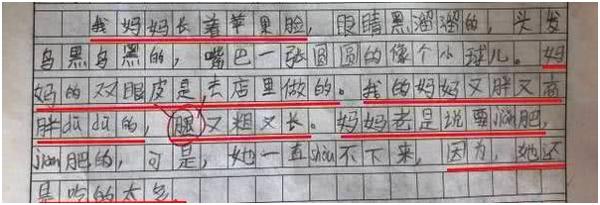 我妈妈长着苹果脸，眼睛黑溜溜的，头发
乌黑乌黑的，嘴巴一张圆圆的像个小球儿。妈
妈的双眼皮是去店里做的。我的妈妈又胖又高
胖dū dū的，腿又粗又长。妈妈老是说要jiǎn肥，
jiǎn肥的，可是，她一直shòu不下来，因为，她还
是吃的太多。